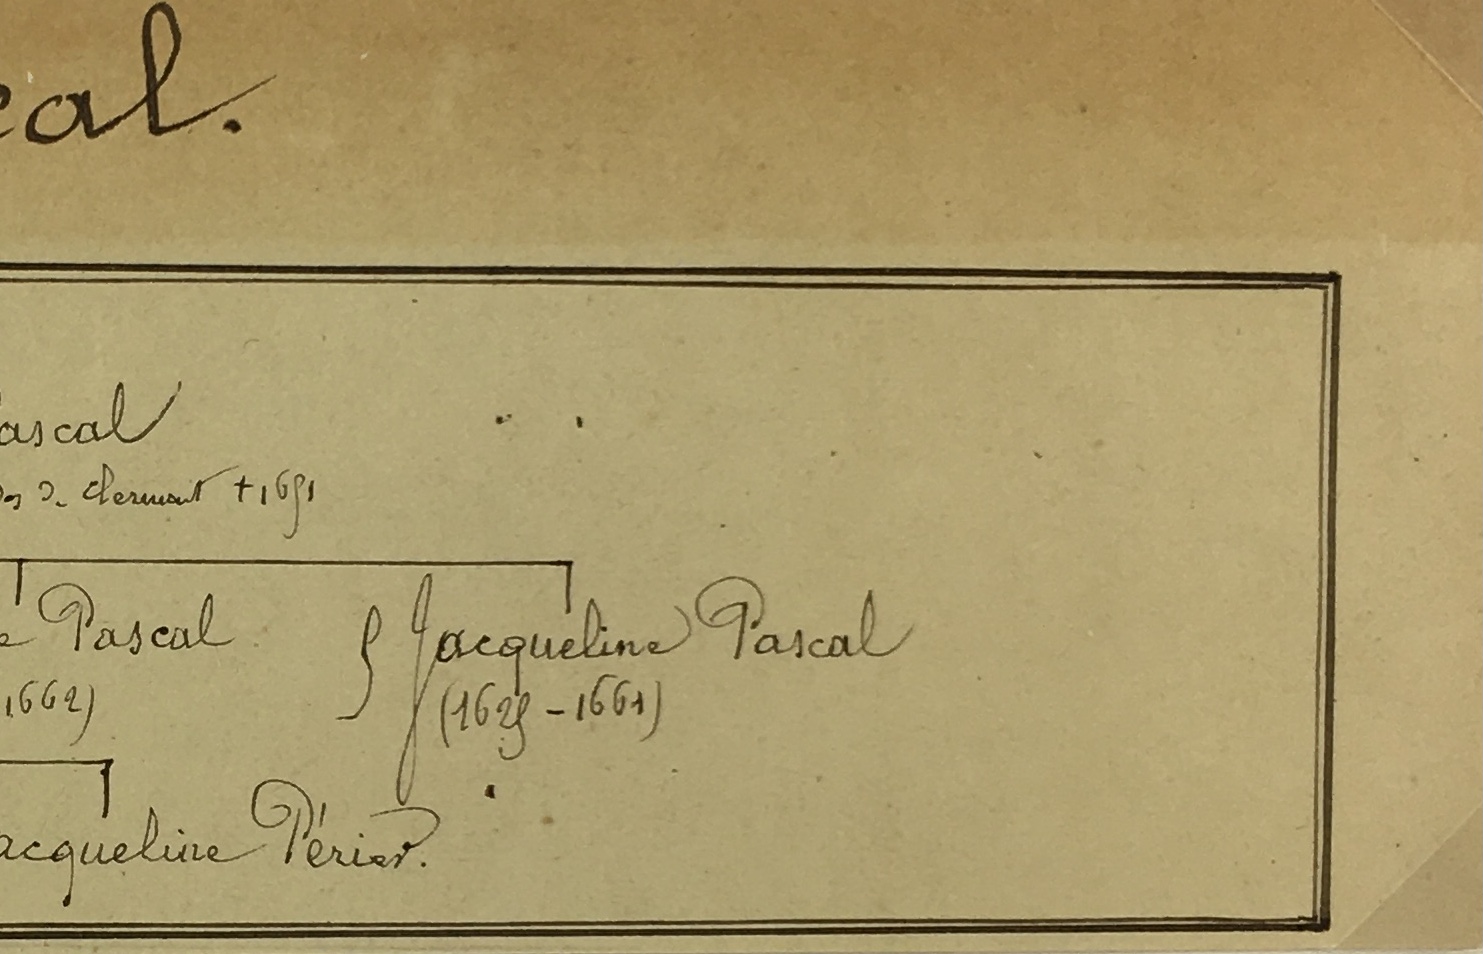 cal.
Pascal
de Clermont + 1651
e Pascal } Jacqueline Pascal
1662) (1625 - 1661)
acqueline Périer.